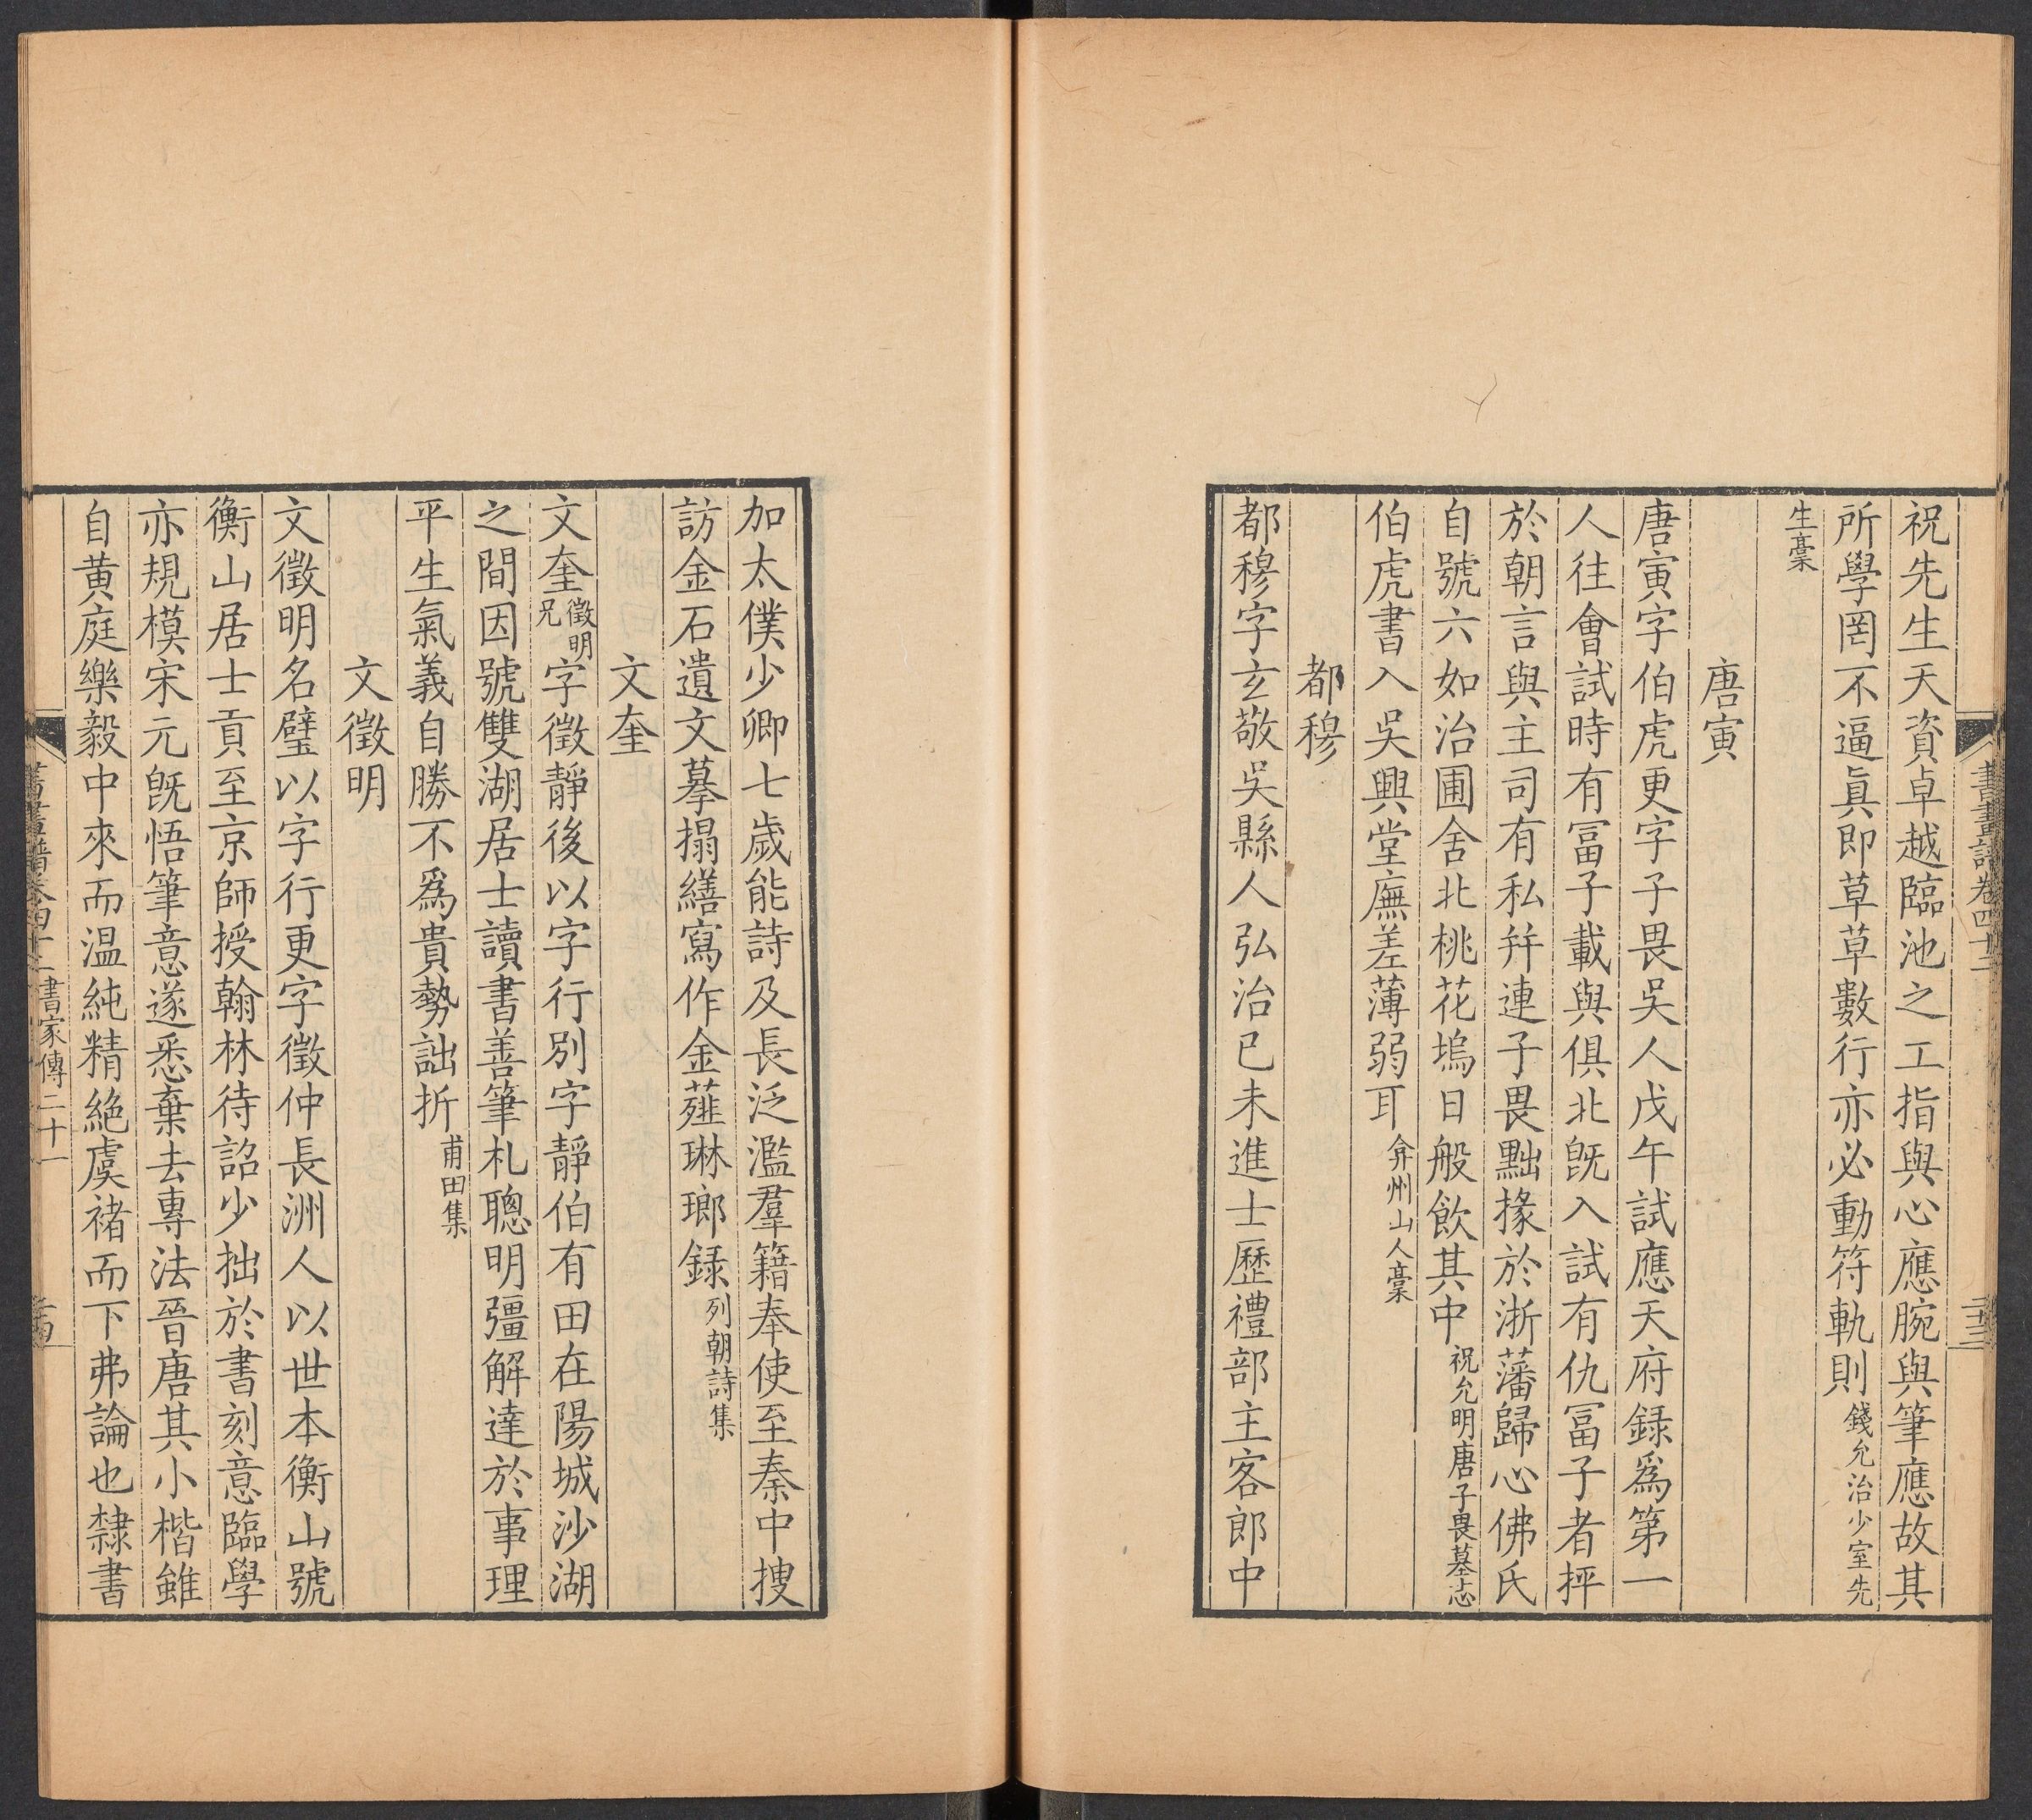 書畫譜卷四十二
二十三
祝先生天資卓越臨池之工指與心應腕與筆應故其
所學罔不逼眞即草草數行亦必動符軌則錢允治少室先
生稾
唐寅
唐寅字伯虎更字子畏吳人戊午試應天府録爲第一
人往會試時有冨子載與俱北旣入試有仇冨子者抨
於朝言與主司有私幷連子畏黜掾於浙藩歸心佛氏
自號六如治圃舍北桃花塢日般飲其中祝允明唐子畏墓志
伯虎書入吳興堂廡差薄弱耳弇州山人稾
都穆
都穆字玄敬吳縣人弘治已未進士歷禮部主客郎中
加太僕少卿七歲能詩及長泛濫羣籍奉使至秦中搜
訪金石遺文摹搨繕寫作金薤琳瑯録列朝詩集
文奎
文奎徵明兄字徵靜後以字行別字靜伯有田在陽城沙湖
之間因號雙湖居士讀書善筆札聰明彊解達於事理
平生氣義自勝不爲貴勢詘折甫田集
文徵明
文徵明名璧以字行更字徵仲長洲人以世本衡山號
衡山居士貢至京師授翰林待詔少拙於書刻意臨學
亦規模宋元旣悟筆意遂悉棄去專法晉唐其小楷雖
自黃庭樂毅中來而温純精絶虞褚而下弗論也隸書
書畫譜卷四十二書家傳二十一